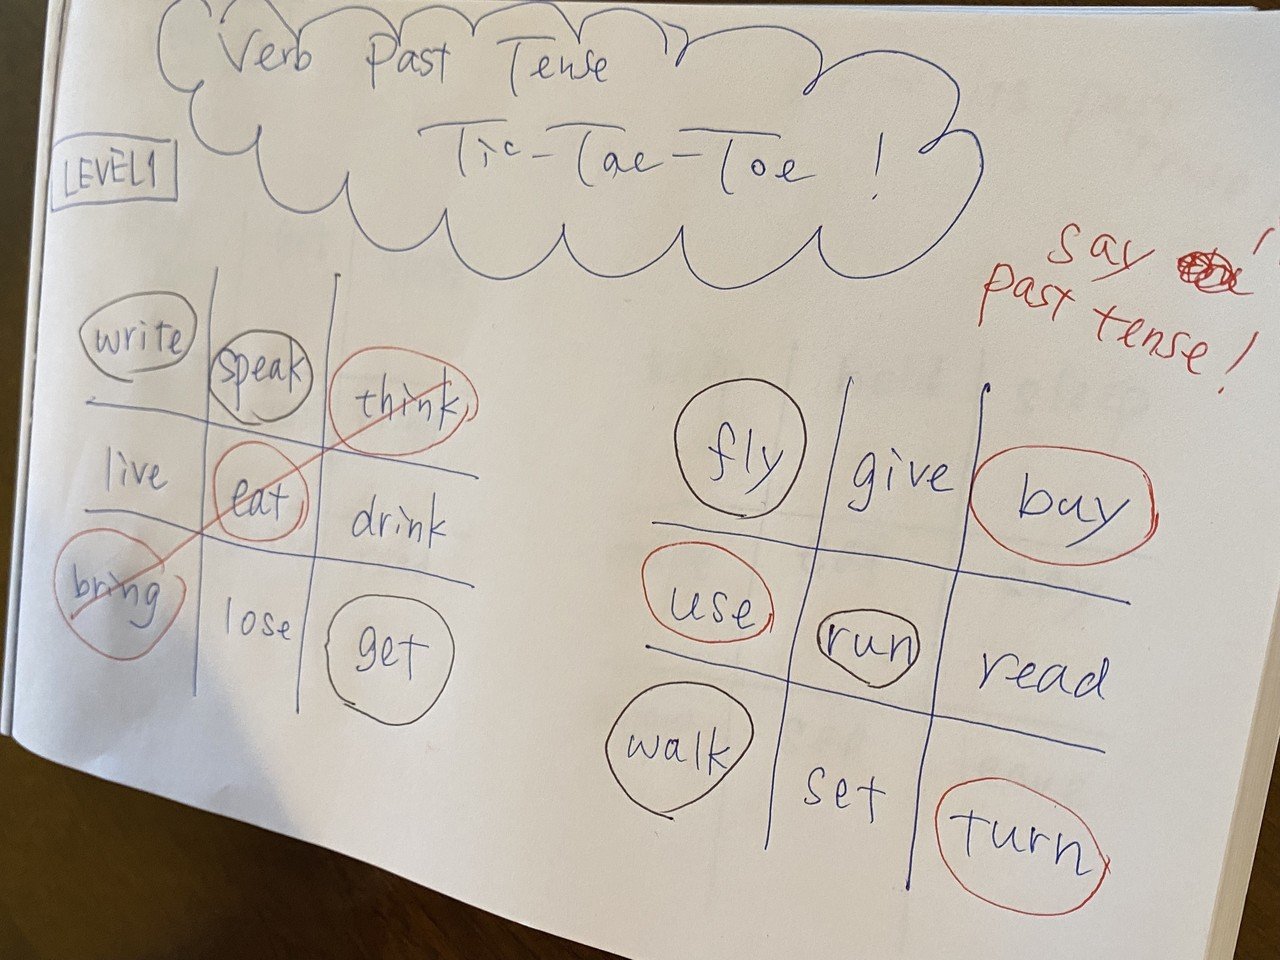 Verb Past Tense
Tic-Tac-Toe!
LEVEL1
say
past tense!
write speak think
live eat drink
bring lose get
fly give buy
use run read
walk set turn